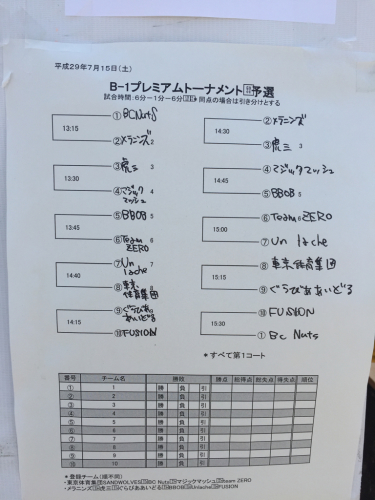 平成29年7月15日(土)
B-1プレミアムトーナメント予選
試合時間:6分ー1分ー6分 同点の場合は引き分けとする
①BCNutS
13:15
②メラニンズ 2
③虎三 3
13:30
④マジックマッシュ 4
⑤BBOB 5
13:45
⑥Team ZERO 6
⑦Un lache 7
14:40
⑧東京体育集団 8
⑨ぐらびああいどる
14:15
⑩FUSION
②メラニンズ
14:30
③虎三 3
④マジックマッシュ
14:45
⑤BBOB 5
⑥Team ZERO
15:00
⑦Un lache
⑧東京体育集団
15:15
⑨ぐらびああいどる
⑩FUSION
15:30
①Bc Nuts
*すべて第1コート
番号 チーム名 勝敗 勝点 総得点 総失点 得失点 順位
① 1 勝 負 引
② 2 勝 負 引
③ 3 勝 負 引
④ 4 勝 負 引
⑤ 5 勝 負 引
⑥ 6 勝 負 引
⑦ 7 勝 負 引
⑧ 8 勝 負 引
⑨ 9 勝 負 引
⑩ 10 勝 負 引
*登録チーム(順不同)
・東京体育集団SANDWOLVES BC Nuts マジックマッシュ team ZERO
・メラニンズ 虎三 ぐらびああいどる BBOB Unlache FUSION